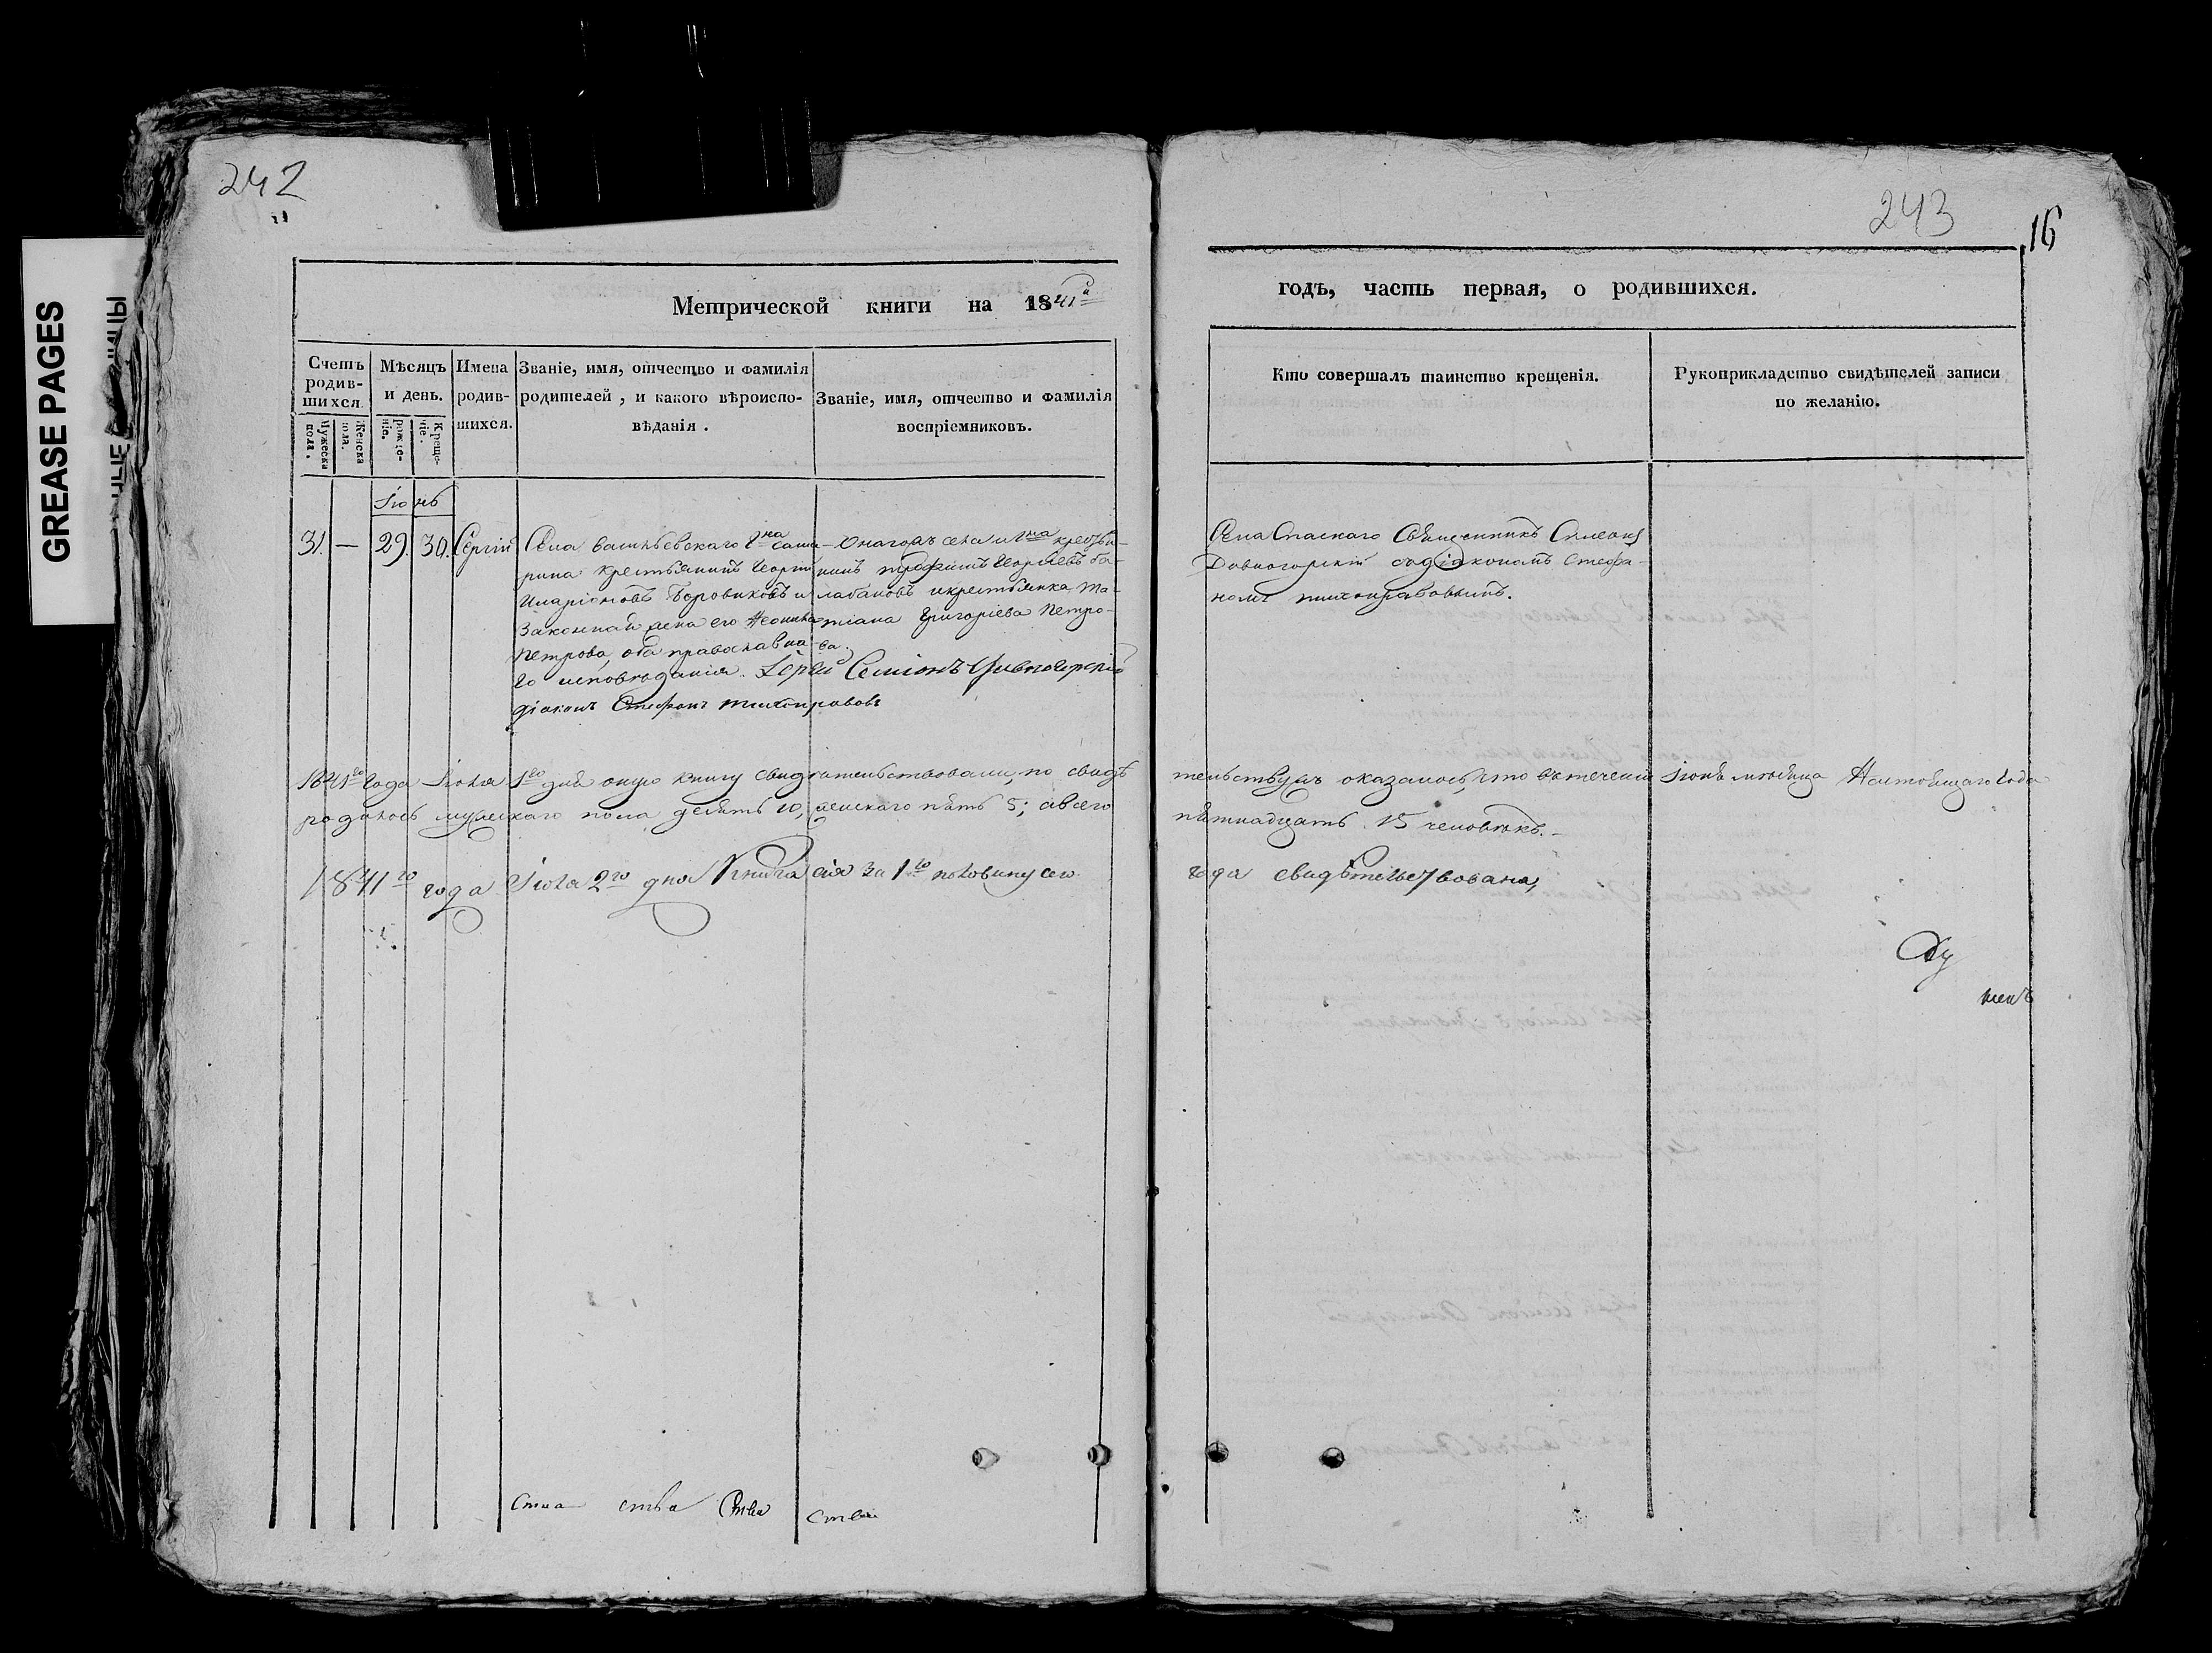 GREASE PAGES
242
243
16
Метрической книги на 1841й
годъ, часть первая, о родившихся.
Счетъ родив-шихся.
Мужеска пола.
Женска пола.
Мѣсяцъ и день.
рожде-ніе.
Креще-ніе.
Имена родив-шихся.
Званіе, имя, отчество и фамилія
родителей, и какого вѣроиспо-
вѣданія.
Званіе, имя, отчество и фамилія
воспріемниковъ.
Кто совершалъ таинство крещенія.
Рукоприкладство свидѣтелей записи
по желанію.
Іюнь
31. — 29. 30. Сергій
Села Васильевскаго Гна Сама-
рина крестьянинъ Георгій
Иларіоновъ Боровиковъ и
законная жена его
Петрова, оба православна-
го исповѣданія.
Онагожъ села и Гна крестья-
нинъ Трофимъ Георгіевъ Ба-
лабановъ и крестьянка Та-
тіана Григоріева Петро-
ва.
Іерей Симеонъ Дивногорскій
діаконъ Стефанъ Тихонравовъ
Села Спаскаго Священникъ Симеонъ
Дивногорскій съ діакономъ Стефа-
номъ Тихонравовымъ.
1841го года Іюля 1го дня оную книгу свидѣтельствовали, по свидѣ
тельству жъ оказалось, что въ теченіи Іюня мѣсяца настоящаго года
родилось мужескаго пола десять 10, женскаго пять 5; а всего
пятнадцать 15 человѣкъ.
1841го года Іюля 2го дня Книга сія за 1ю половину сего
года свидѣтельствована,